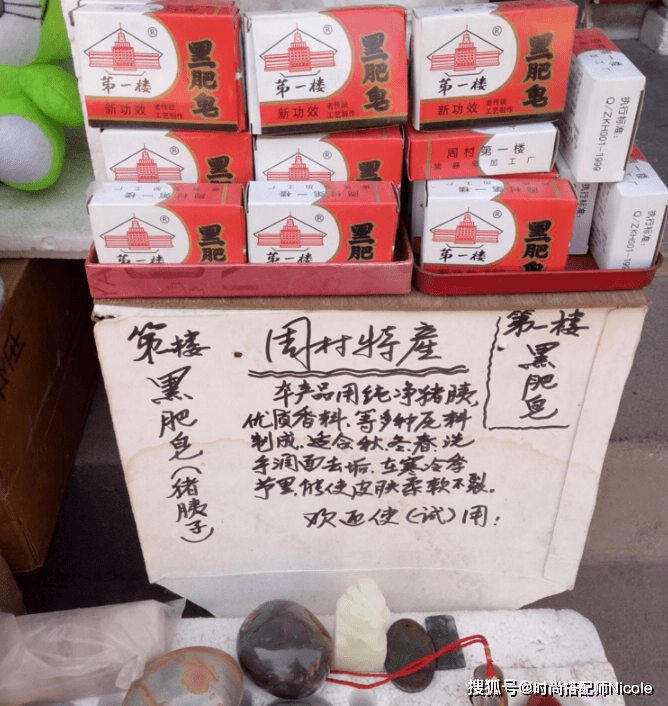 黑肥皂
®
第一楼
新功效
老传统
工艺制作
黑肥皂
®
第一楼
新功效
老传统
工艺制作
黑肥皂
®
第一楼
新功效
老传统
工艺制作
执行标准:
Q/ZKH001-1999
®
®
周村第一楼
加工厂
黑肥皂
®
第一楼
黑肥皂
®
第一楼
黑肥皂
®
第一楼
执行标准:
第一楼
黑肥皂(猪胰子)
周村特産
第一楼
黑肥皂
本产品用纯净猪胰
优质香料.等多种原料
制成.适合秋.冬.春.洗
手润面去垢.在寒冷季
节里能使皮肤柔软不裂。
欢迎使(试)用!
搜狐号@时尚搭配师Nicole